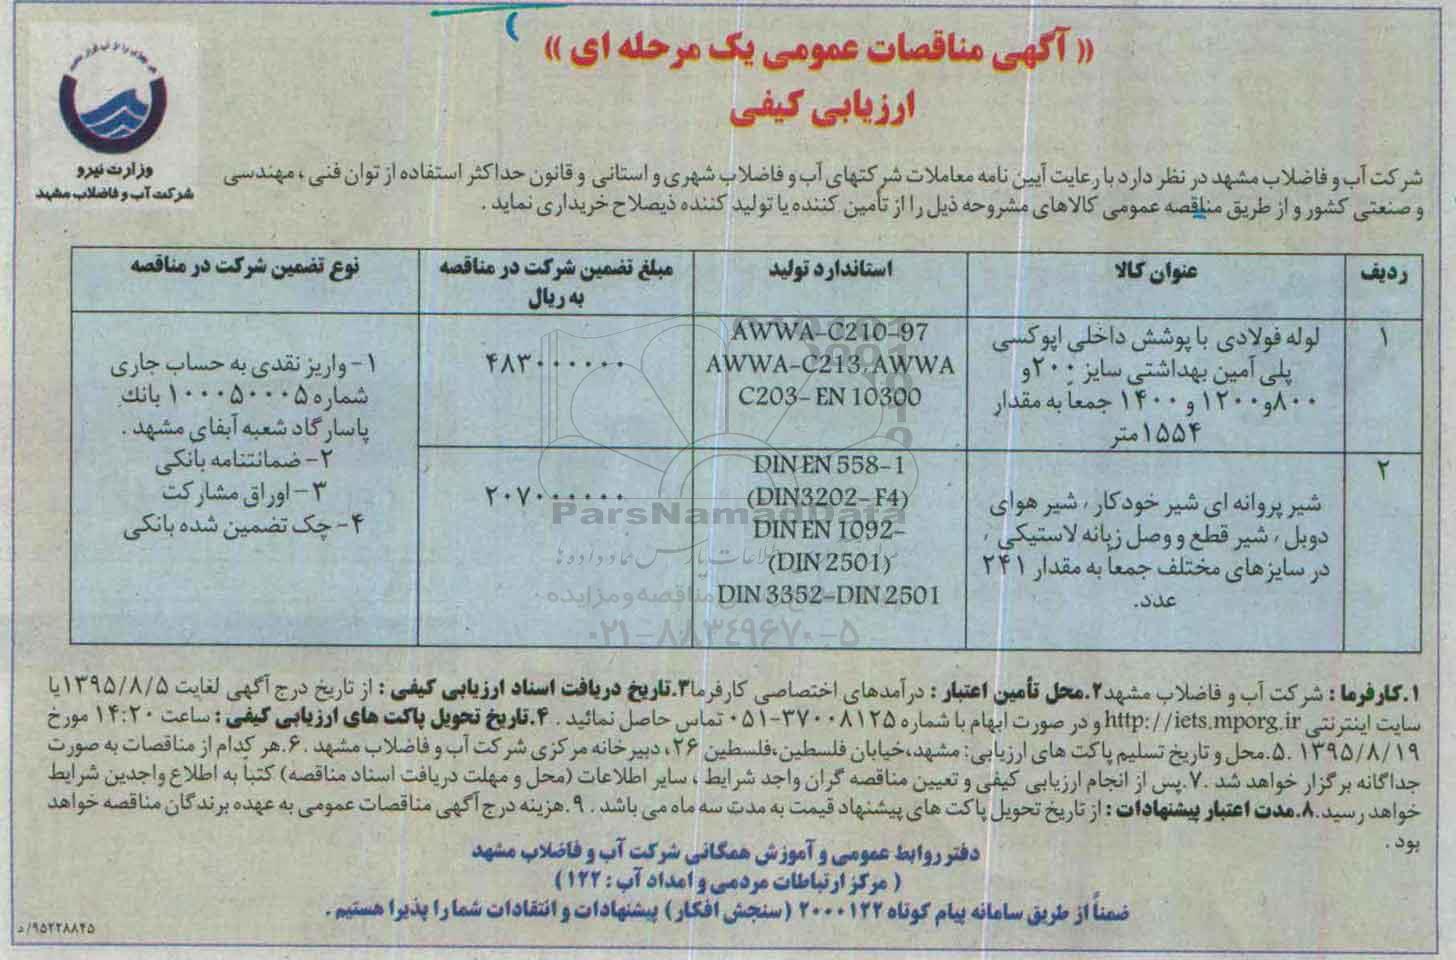 (( آگهی مناقصات عمومی یک مرحله ای ))
ارزیابی کیفی
وزارت نیرو
شرکت آب و فاضلاب مشهد
شرکت آب و فاضلاب مشهد در نظر دارد با رعایت آیین نامه معاملات شرکتهای آب و فاضلاب شهری و استانی و قانون حداکثر استفاده از توان فنی ، مهندسی
و صنعتی کشور و از طریق مناقصه عمومی کالاهای مشروحه ذیل را از تأمین کننده یا تولید کننده ذیصلاح خریداری نماید .
ردیف
عنوان کالا
استاندارد تولید
مبلغ تضمین شرکت در مناقصه
به ریال
نوع تضمین شرکت در مناقصه
۱
لوله فولادی با پوشش داخلی اپوکسی
پلی آمین بهداشتی سایز ۲۰۰ و
۸۰۰و۱۲۰۰ و ۱۴۰۰ جمعاً به مقدار
۱۵۵۴متر
AWWA-C210-97
AWWA-C213,AWWA
C203- EN 10300
۴۸۳۰۰۰۰۰۰
۱- واریز نقدی به حساب جاری
شماره ۱۰۰۰۵۰۰۰۵ بانک
پاسارگاد شعبه آبفای مشهد .
۲- ضمانتنامه بانکی
۳- اوراق مشارکت
۴- چک تضمین شده بانکی
۲
شیر پروانه ای شیر خودکار ، شیر هوای
دوبل ، شیر قطع و وصل زبانه لاستیکی ،
در سایزهای مختلف جمعاً به مقدار ۲۴۱
عدد.
DIN EN 558-1
(DIN3202-F4)
DIN EN 1092-
(DIN 2501)
DIN 3352-DIN 2501
۲۰۷۰۰۰۰۰۰
ParsNamadData
۰۲۱-۸۸۳۴۹۶۷۰-۵
۱.کارفرما : شرکت آب و فاضلاب مشهد۲.محل تأمین اعتبار : درآمدهای اختصاصی کارفرما۳.تاریخ دریافت اسناد ارزیابی کیفی : از تاریخ درج آگهی لغایت ۱۳۹۵/۸/۵یا
سایت اینترنتی http://iets.mporg.ir و در صورت ابهام با شماره ۳۷۰۰۸۱۲۵-۰۵۱ تماس حاصل نمائید . ۴.تاریخ تحویل پاکت های ارزیابی کیفی : ساعت ۱۴:۲۰ مورخ
۱۳۹۵/۸/۱۹ .۵.محل و تاریخ تسلیم پاکت های ارزیابی: مشهد،خیابان فلسطین،فلسطین ۲۶، دبیرخانه مرکزی شرکت آب و فاضلاب مشهد .۶.هر کدام از مناقصات به صورت
جداگانه برگزار خواهد شد .۷.پس از انجام ارزیابی کیفی و تعیین مناقصه گران واجد شرایط ، سایر اطلاعات (محل و مهلت دریافت اسناد مناقصه) کتباً به اطلاع واجدین شرایط
خواهد رسید.۸.مدت اعتبار پیشنهادات : از تاریخ تحویل پاکت های پیشنهاد قیمت به مدت سه ماه می باشد . ۹.هزینه درج آگهی مناقصات عمومی به عهده برندگان مناقصه خواهد
بود .
دفتر روابط عمومی و آموزش همگانی شرکت آب و فاضلاب مشهد
( مرکز ارتباطات مردمی و امداد آب : ۱۲۲ )
ضمناً از طریق سامانه پیام کوتاه ۲۰۰۰۱۲۲ (سنجش افکار) پیشنهادات و انتقادات شما را پذیرا هستیم .
۹۵۲۲۸۸۴۵/د